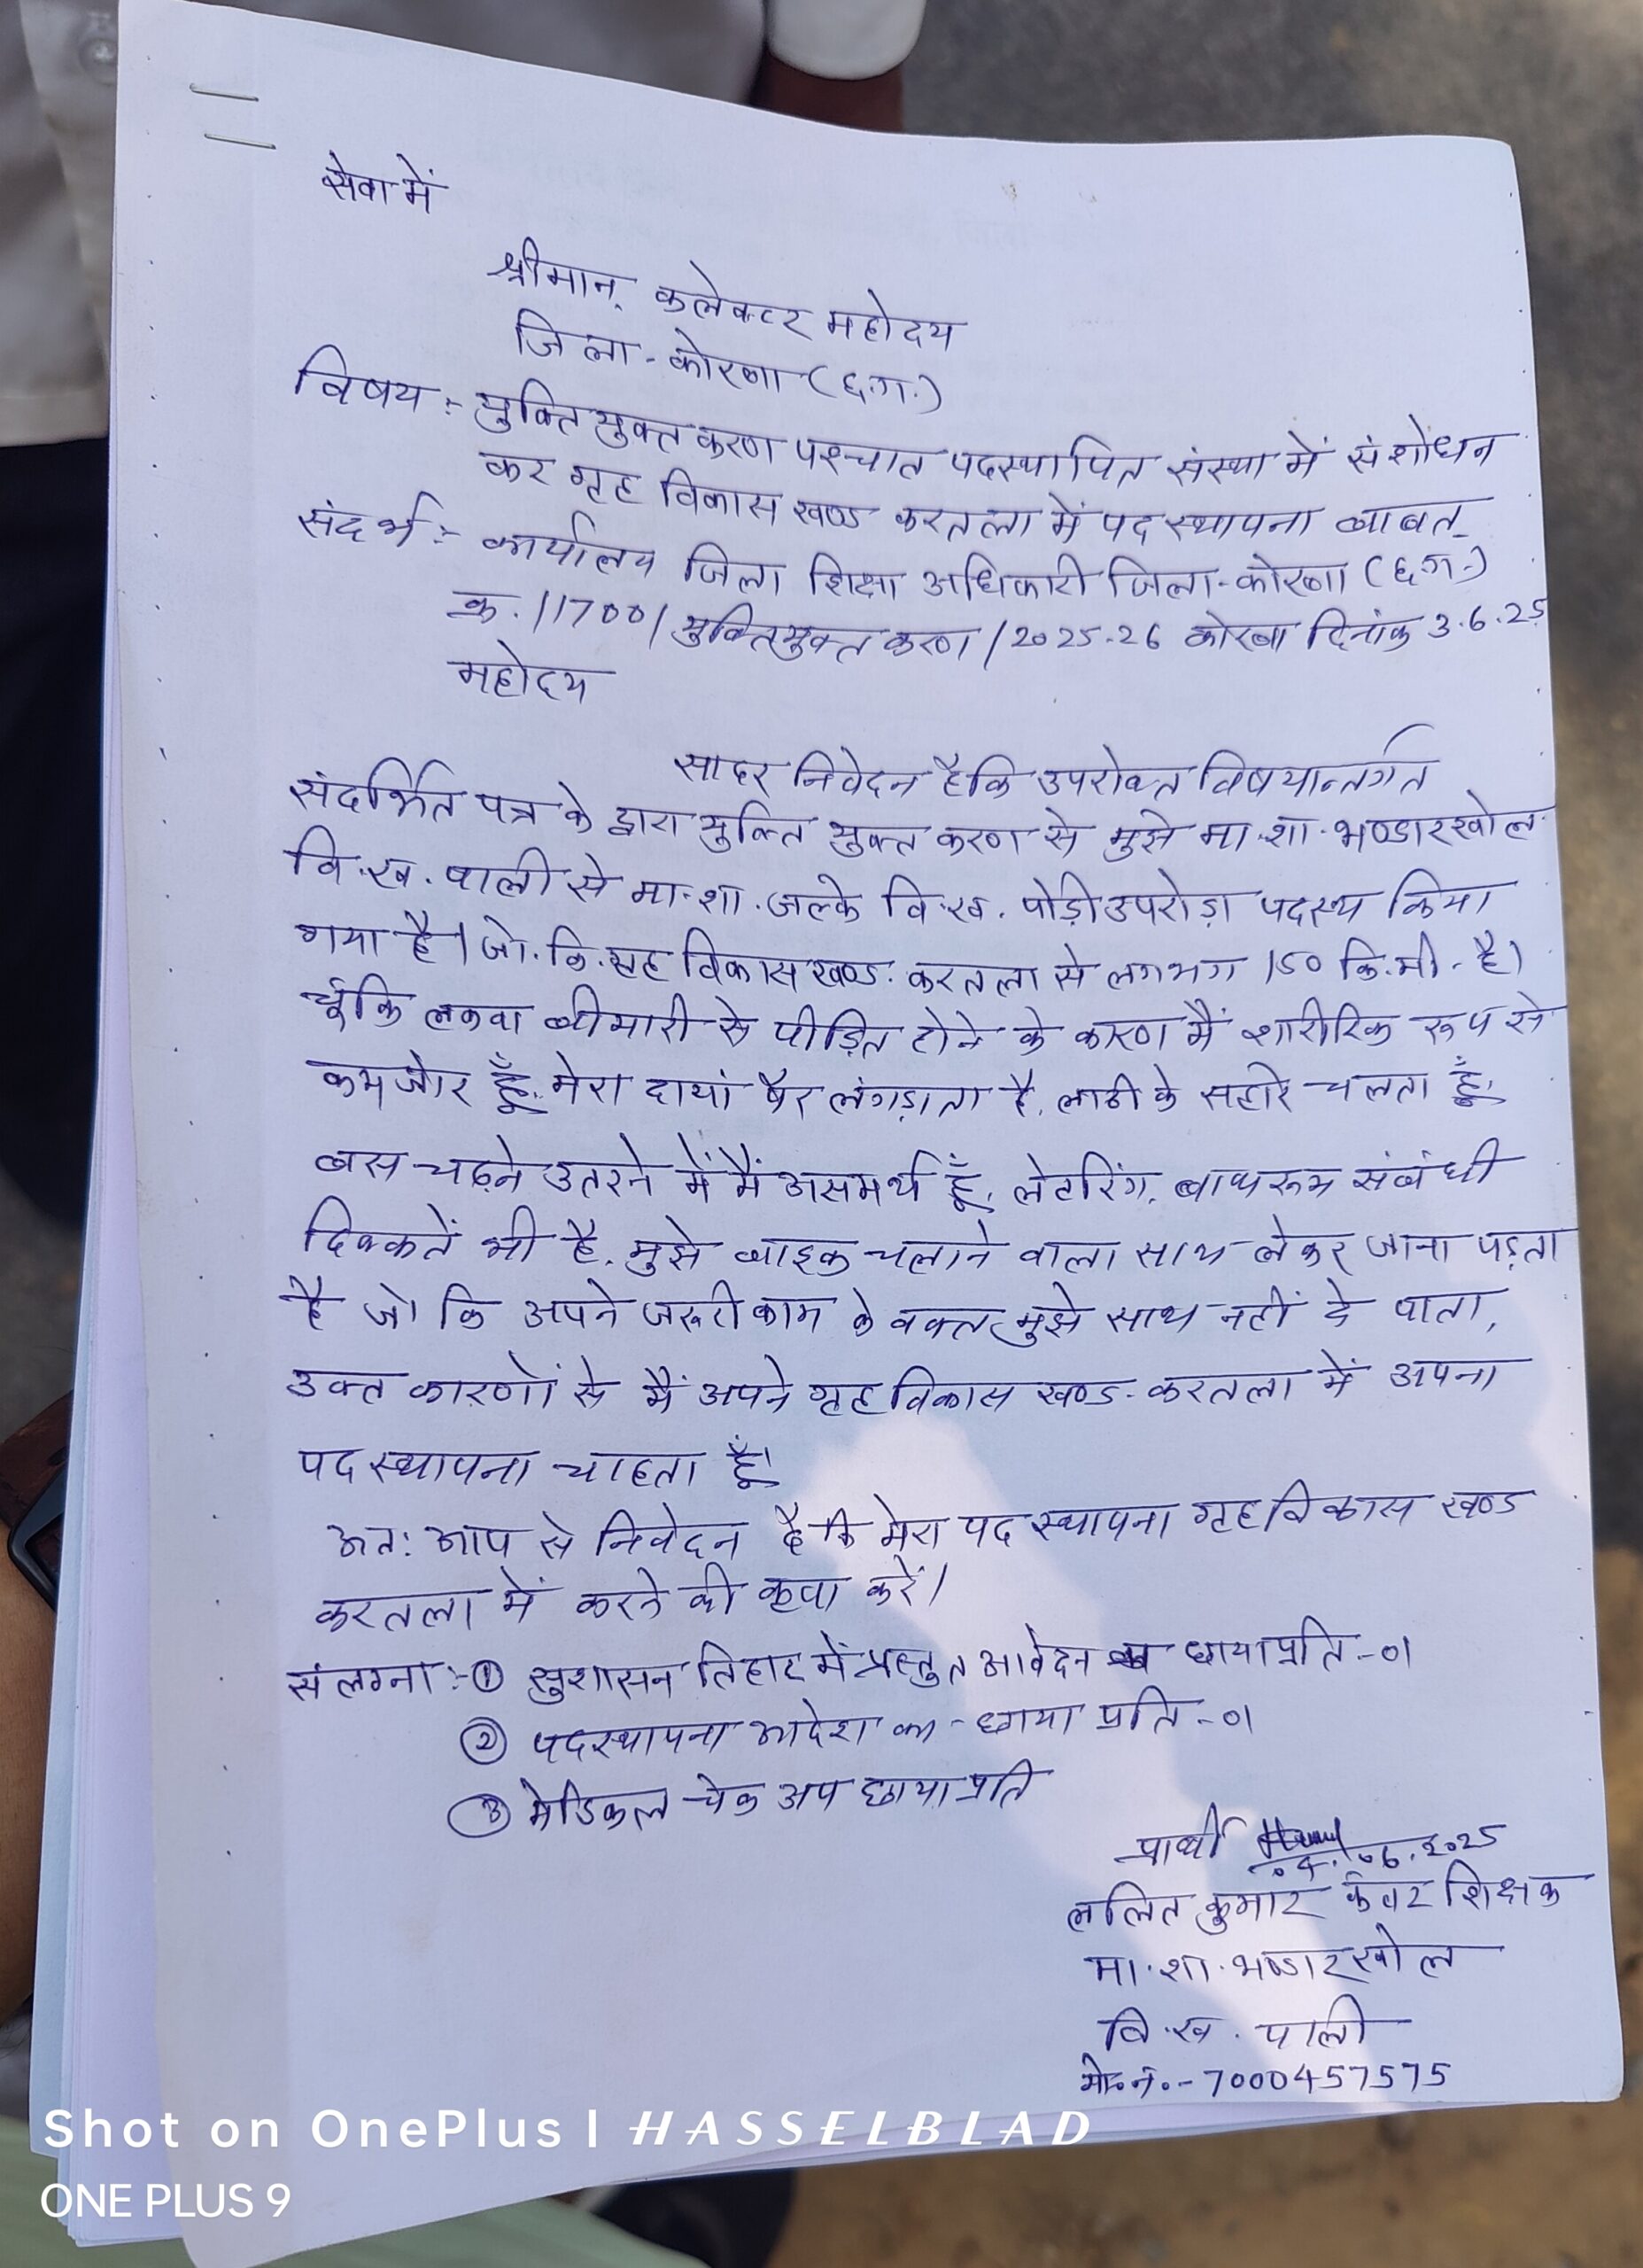 सेवा में
श्रीमान् कलेक्टर महोदय
जिला - कोरबा (छ.ग.)
विषय :- युक्ति युक्त करण पश्चात पदस्थापित संस्था में संशोधन
कर गृह विकास खण्ड करतला में पद स्थापना बाबत्
संदर्भ :- कार्यालय जिला शिक्षा अधिकारी जिला-कोरबा (छ.ग.)
क्र. /1700/ युक्तियुक्त करण /2025-26 कोरबा दिनांक 3.6.25
महोदय
सादर निवेदन है कि उपरोक्त विषयान्तर्गत
संदर्भित पत्र के द्वारा युक्ति युक्त करण से मुझे मा.शा. भण्डारखोल
वि.ख. पाली से मा.शा. जल्के वि.ख. पोड़ी उपरोड़ा पदस्थ किया
गया है। जो. कि. गृह विकास खण्ड. करतला से लगभग 150 कि.मी. है।
चूंकि लकवा बीमारी से पीड़ित होने के कारण मैं शारीरिक रूप से
कमजोर हूँ. मेरा दायां पैर लंगड़ाता है. लाठी के सहारे चलता हूँ.
बस चढ़ने उतरने में मैं असमर्थ हूँ. लेटरिंग. बाथरूम संबंधी
दिक्कतें भी है. मुझे बाइक चलाने वाला साथ लेकर जाना पड़ता
है जो कि अपने जरूरी काम के वक्त मुझे साथ नहीं दे पाता,
उक्त कारणों से मैं अपने गृह विकास खण्ड - करतला में अपना
पद स्थापना चाहता हूँ।
अतः आप से निवेदन है कि मेरा पद स्थापना गृह विकास खण्ड
करतला में करने की कृपा करें।
संलग्न :- ① सुशासन तिहार में प्रस्तुत आवेदन छायाप्रति - 01
② पदस्थापना आदेश का - छाया प्रति - 01
③ मेडिकल चेक अप छाया प्रति
प्रार्थी 04.06.2025
ललित कुमार कंवर शिक्षक
मा.शा. भण्डारखोल
वि.ख. पाली
मो.नं. - 7000457575
Shot on OnePlus | HASSELBLAD
ONE PLUS 9